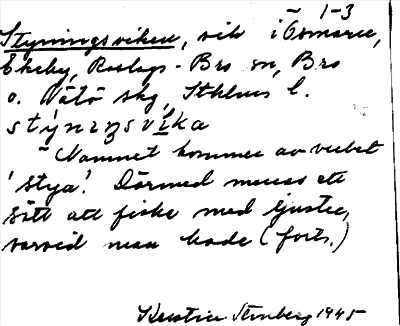 1-3
Styningsviken, vik i Osmaren,
Ekeby, Roslags-Bro sn, Bro
o. Vätö skg, Sthlms l.
Namnet kommer av verbet
'stya'. Därmed menas ett
sätt att fiska med ljuster,
varvid man hade (forts.)
Kerstin Stenberg 1945